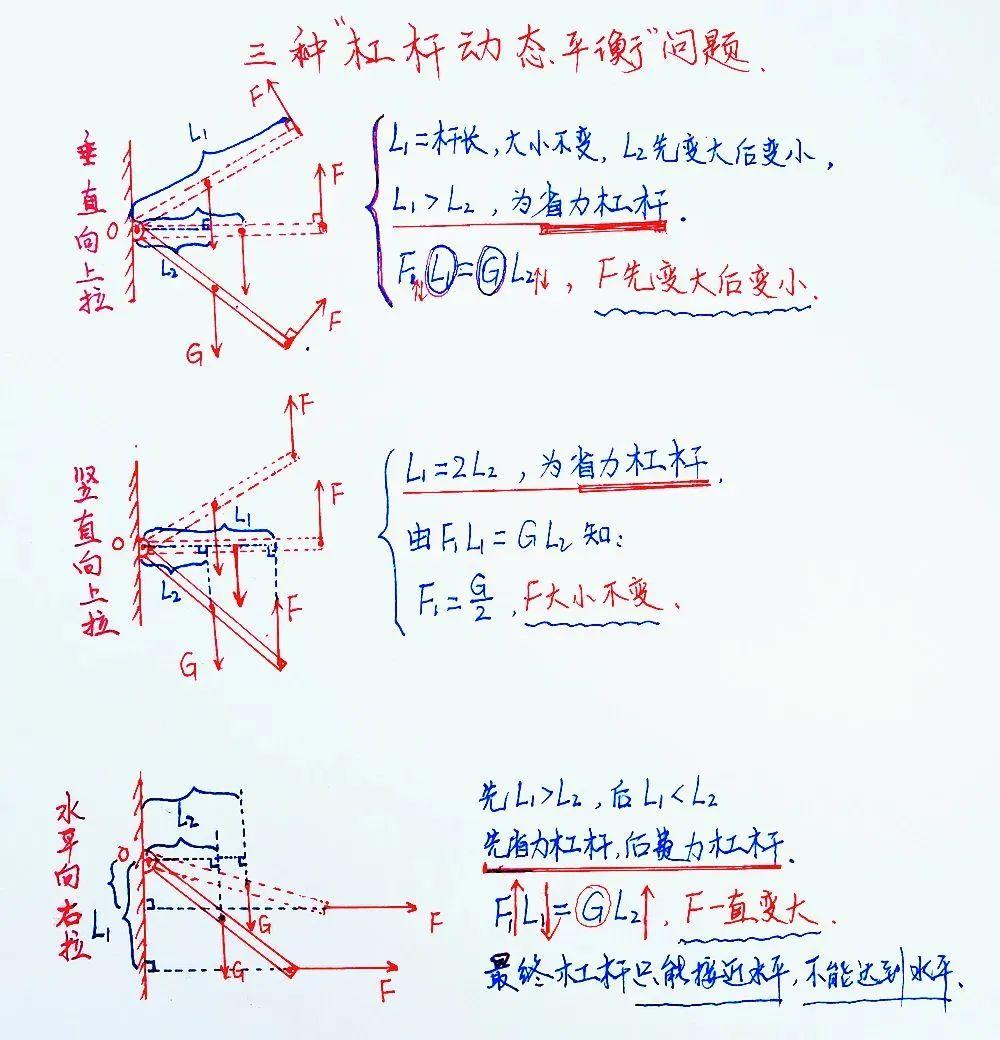 三种"杠杆动态平衡"问题.
垂直向上拉
F
L₁
F
O
L₂
F
G
L₁=杆长,大小不变,L₂先变大后变小,
L₁>L₂,为省力杠杆.
F₁⇅L₁=GL₂⇅,F先变大后变小.
竖直向上拉
F
F
L₁
O
L₂
F
G
L₁=2L₂,为省力杠杆.
由F₁L₁=GL₂知:
F₁=G/2,F大小不变.
水平向右拉
L₂
O
L₁
G
F
G
F
先L₁>L₂,后L₁<L₂
先省力杠杆,后费力杠杆.
F₁↑L₁↓=GL₂↑,F一直变大.
最终杠杆只能接近水平,不能达到水平.